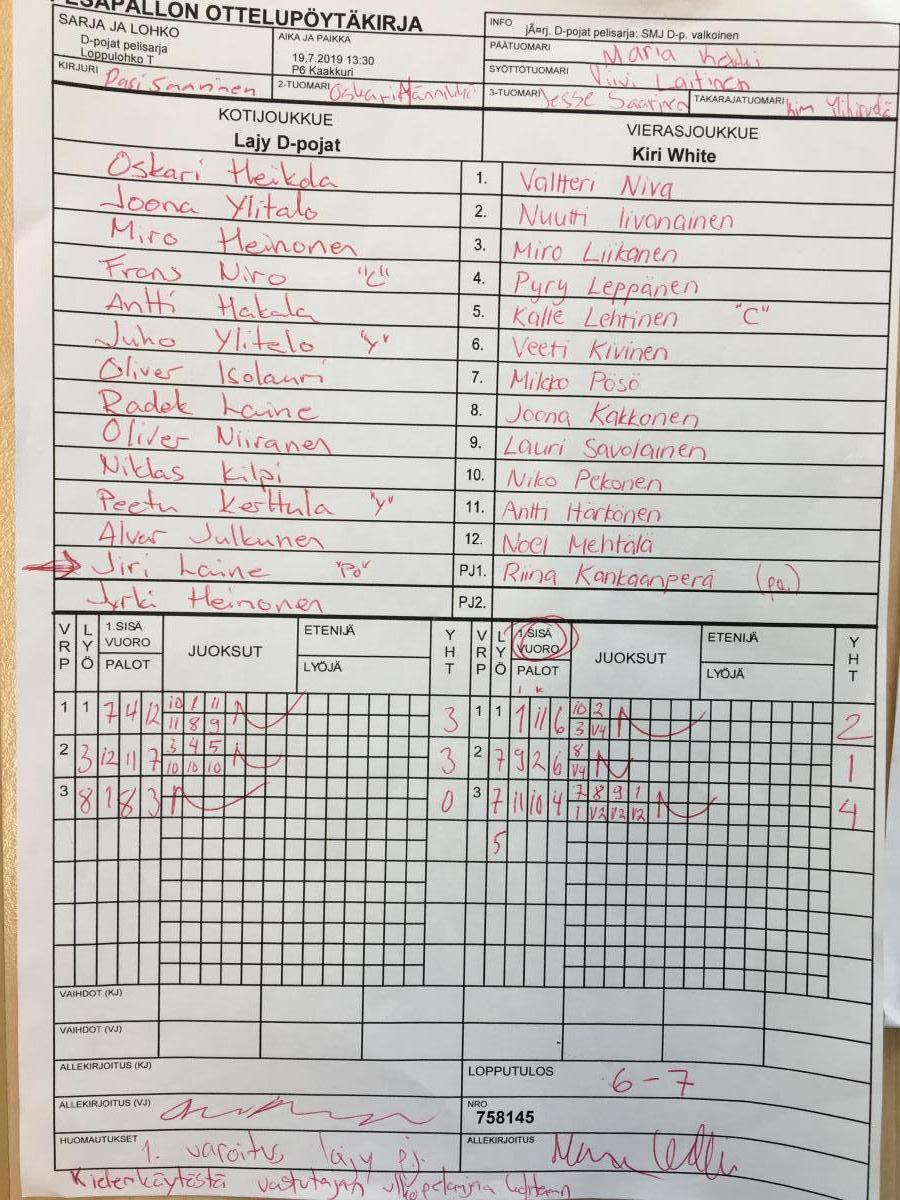 PESÄPALLON OTTELUPÖYTÄKIRJA
SARJA JA LOHKO
D-pojat pelisarja
Loppulohko T
AIKA JA PAIKKA
19.7.2019 13:30
P6 Kaakkuri
INFO
jÃ¤rj. D-pojat pelisarja: SMJ D-p. valkoinen
PÄÄTUOMARI Maria
SYÖTTÖTUOMARI Viivi Laitinen
KIRJURI Pasi Saarinen
2-TUOMARI Oskari Männikkö
3-TUOMARI Jesse Saarinen
TAKARAJATUOMARI Kim
KOTIJOUKKUE
Lajy D-pojat
VIERASJOUKKUE
Kiri White
Oskari Heikola 1. Valtteri Niva
Joona Ylitalo 2. Nuutti Iivanainen
Miro Heinonen 3. Miro Liikanen
Frans Niro "C" 4. Pyry Leppänen
Antti Hakala 5. Kalle Lehtinen "C"
Juho Ylitalo "Y" 6. Veeti Kivinen
Oliver Isolauri 7. Mikko Pösö
Radek Laine 8. Joona Kakkonen
Oliver Niiranen 9. Lauri Savolainen
Niklas Kilpi 10. Niko Pekonen
Peetu Kerttula "Y" 11. Antti Härkönen
Alvar Julkunen 12. Noel Mehtälä
Jiri Laine "Po" PJ1. Riina Kankaanperä (pa.)
Jyrki Heinonen PJ2.
VRP LYÖ 1.SISÄ VUORO PALOT JUOKSUT ETENIJÄ LYÖJÄ YHT VRP LYÖ 1.SISÄ VUORO PALOT JUOKSUT ETENIJÄ LYÖJÄ YHT
I K
1 1 7 4 12 10 1 11 3 1 1 1 11 6 10 2 2
11 8 9 3 V4
2 3 12 11 7 3 4 5 3 2 7 9 2 6 8 1
10 10 10 V4
3 8 1 8 3 0 3 7 11 10 4 7 8 9 1 4
1 V2 V2 V2
5
VAIHDOT (KJ)
VAIHDOT (VJ)
ALLEKIRJOITUS (KJ)
LOPPUTULOS 6-7
ALLEKIRJOITUS (VJ)
NRO
758145
HUOMAUTUKSET 1. varoitus Lajy p.j.
ALLEKIRJOITUS
Kielenkäytöstä vastustajan ulkopelaajia kohtaan